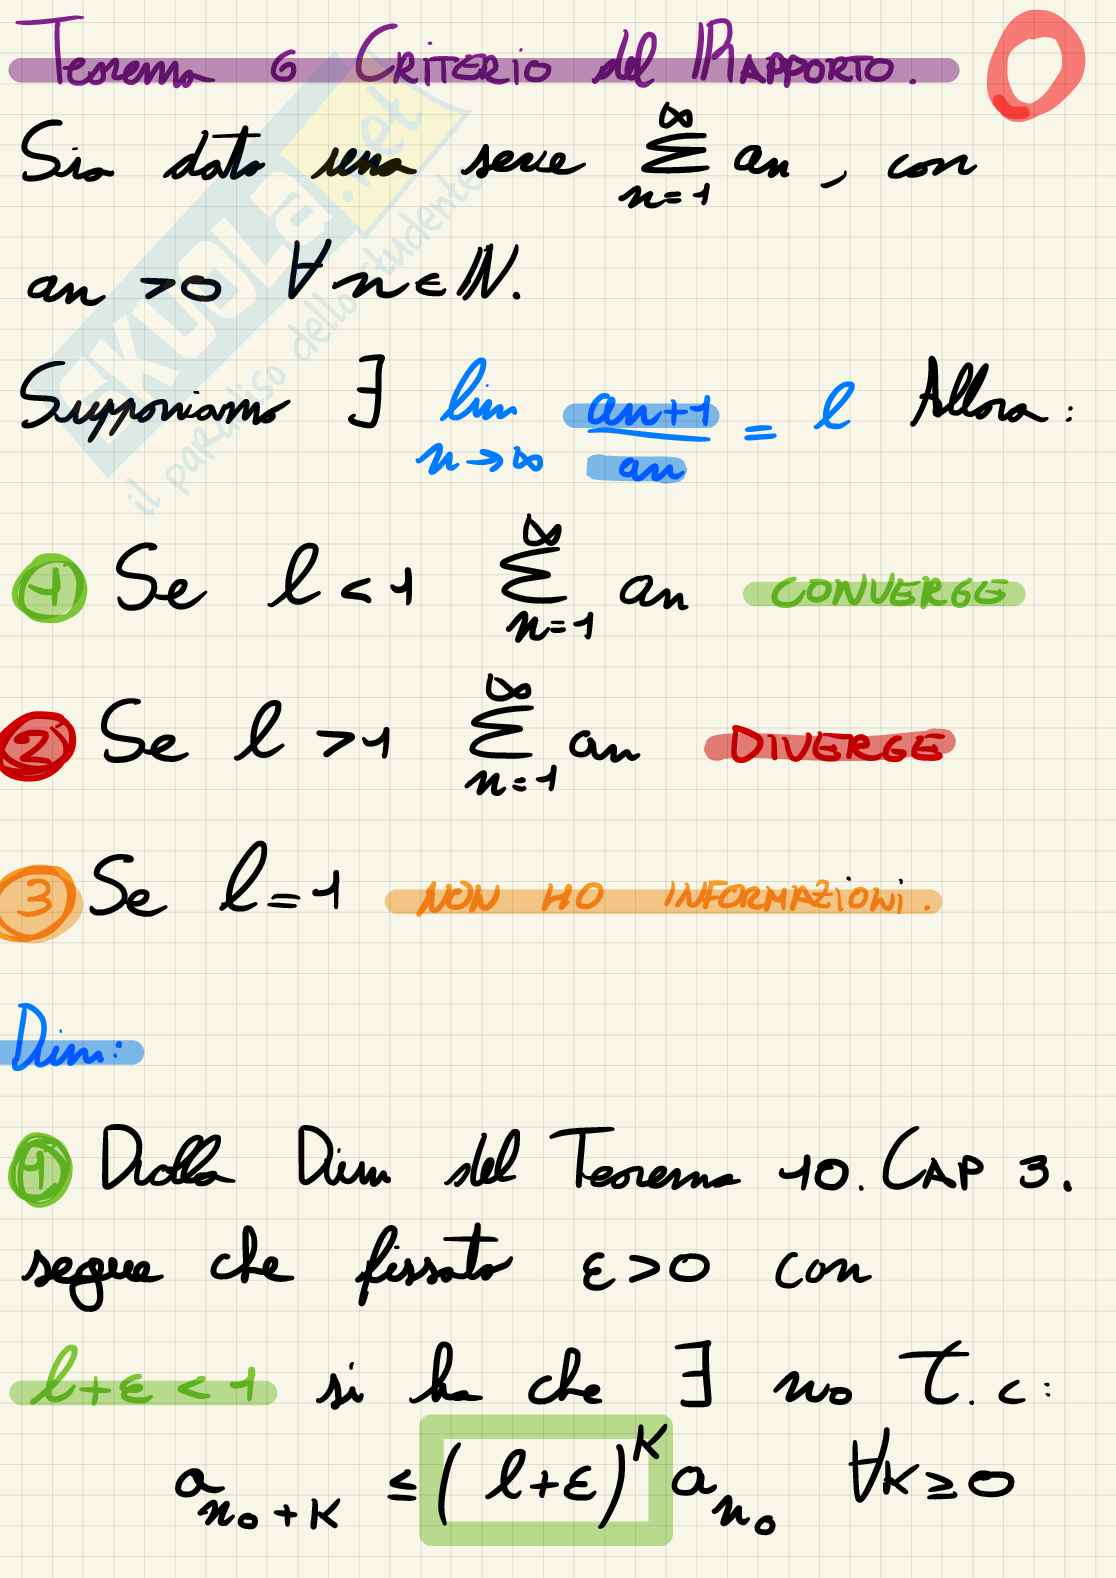 Teorema 6 CRITERIO del RAPPORTO. O
Sia data una serie ∞∑n=1 an, con
an >0 ∀n∈ℕ.
Supponiamo ∃ lim n→∞ an+1/an = l Allora:
1 Se l<1 ∞∑n=1 an CONVERGE
2 Se l>1 ∞∑n=1 an DIVERGE
3 Se l=1 NON HO INFORMAZIONI.
Dim:
1 Dalla Dim del Teorema 10. CAP 3.
segue che fissato ε>0 con
l+ε<1 si ha che ∃ n₀ T.c:
a n₀+K ≤ (l+ε)^K a n₀ ∀K≥0
SKUOLA.net
il paradiso dello studente